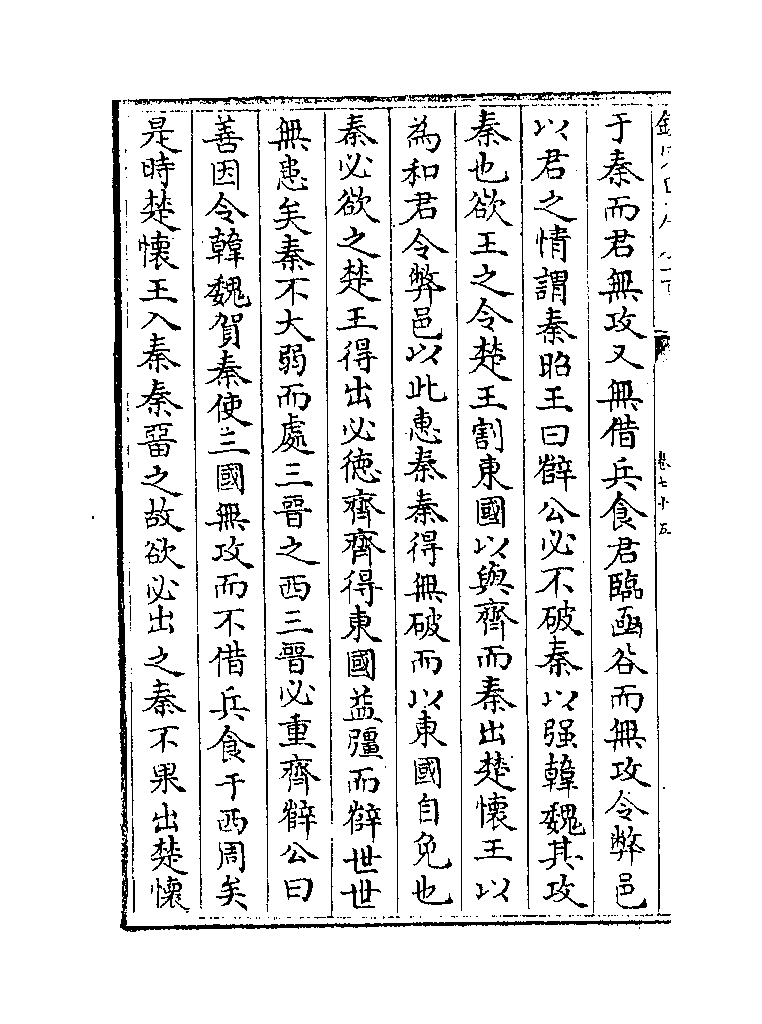 卷七十五
于秦而君無攻又無借兵食君臨函谷而無攻令弊邑
以君之情謂秦昭王曰薛公必不破秦以强韓魏其攻
秦也欲王之令楚王割東國以與齊而秦出楚懷王以
為和君令弊邑以此惠秦秦得無破而以東國自免也
秦必欲之楚王得出必徳齊齊得東國益彊而薛世世
無患矣秦不大弱而處三晉之西三晉必重齊薛公曰
善因令韓魏賀秦使三國無攻而不借兵食于西周矣
是時楚懷王入秦秦畱之故欲必出之秦不果出楚懷